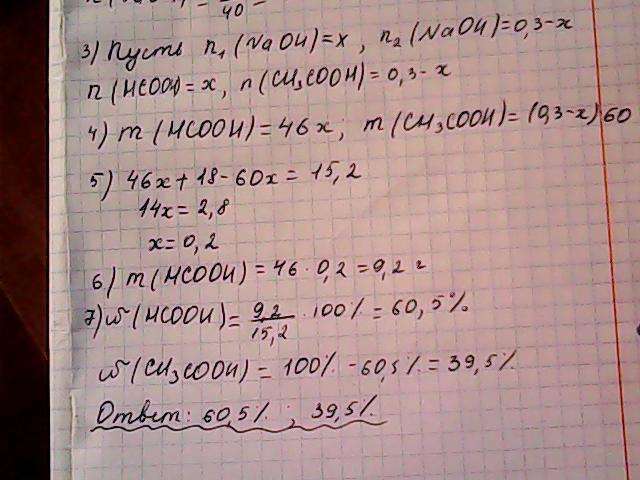 40
3) Пусть n₁(NaOH)=x, n₂(NaOH)=0,3-x
n(HCOOH)=x, n(CH₃COOH)=0,3-x
4) m(HCOOH)=46x; m(CH₃COOH)=(0,3-x)60
5) 46x+18-60x=15,2
14x=2,8
x=0,2
6) m(HCOOH)=46·0,2=9,2 г
7) ω(HCOOH)=9,2/15,2·100%=60,5%
ω(CH₃COOH)=100%-60,5%=39,5%
Ответ: 60,5%; 39,5%